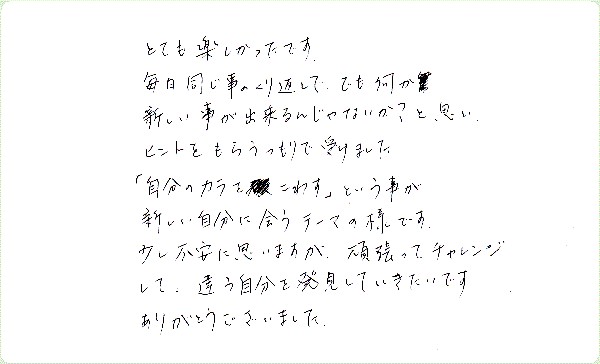 とても楽しかったです.
毎日同じ事のくり返しで、でも何か
新しい事が出来るんじゃないか?と思い、
ヒントをもらうつもりで受けました
「自分のカラをこわす」という事が
新しい自分に会うテーマの様です.
少し不安に思いますが、頑張ってチャレンジ
して、違う自分を発見していきたいです
ありがとうございました.